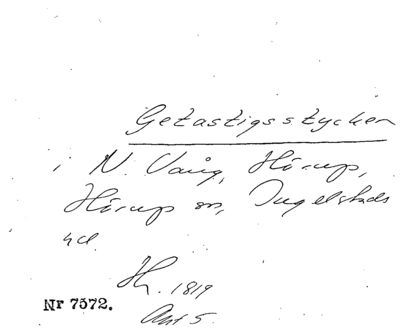 Getastigsstycken
i N. Vång, Hörup,
Hörups sn, Ingelstads
hd.
H. 1819
Akt 5.
Nr 7372.